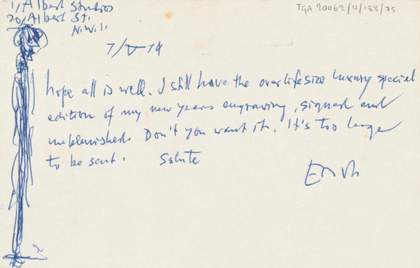 1, Albert Studios
20, Albert St.
N.W.1.
TGA 20062/4/188/75
7/V/79
hope all is well. I still have the over lifesize luxury special
edition of my new years engraving, signed and
unblemished. Don't you want it. It's too large
to be sent. Salute